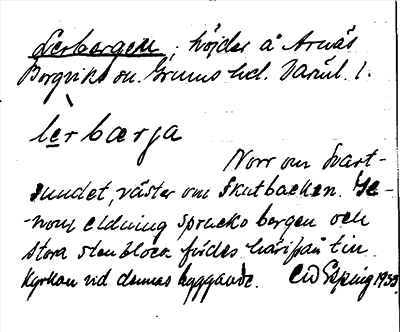 Lerbergen, höjder å Arnäs
Borgviks sn. Grums hd. Värml. l.
lerbærja
Norr om Svart-
sundet, väster om Skutbacken. Ge-
-nom eldning sprucko bergen och
stora stenblock fördes härifrån till
Kyrkan vid dennas byggande. CW Esping 1933.